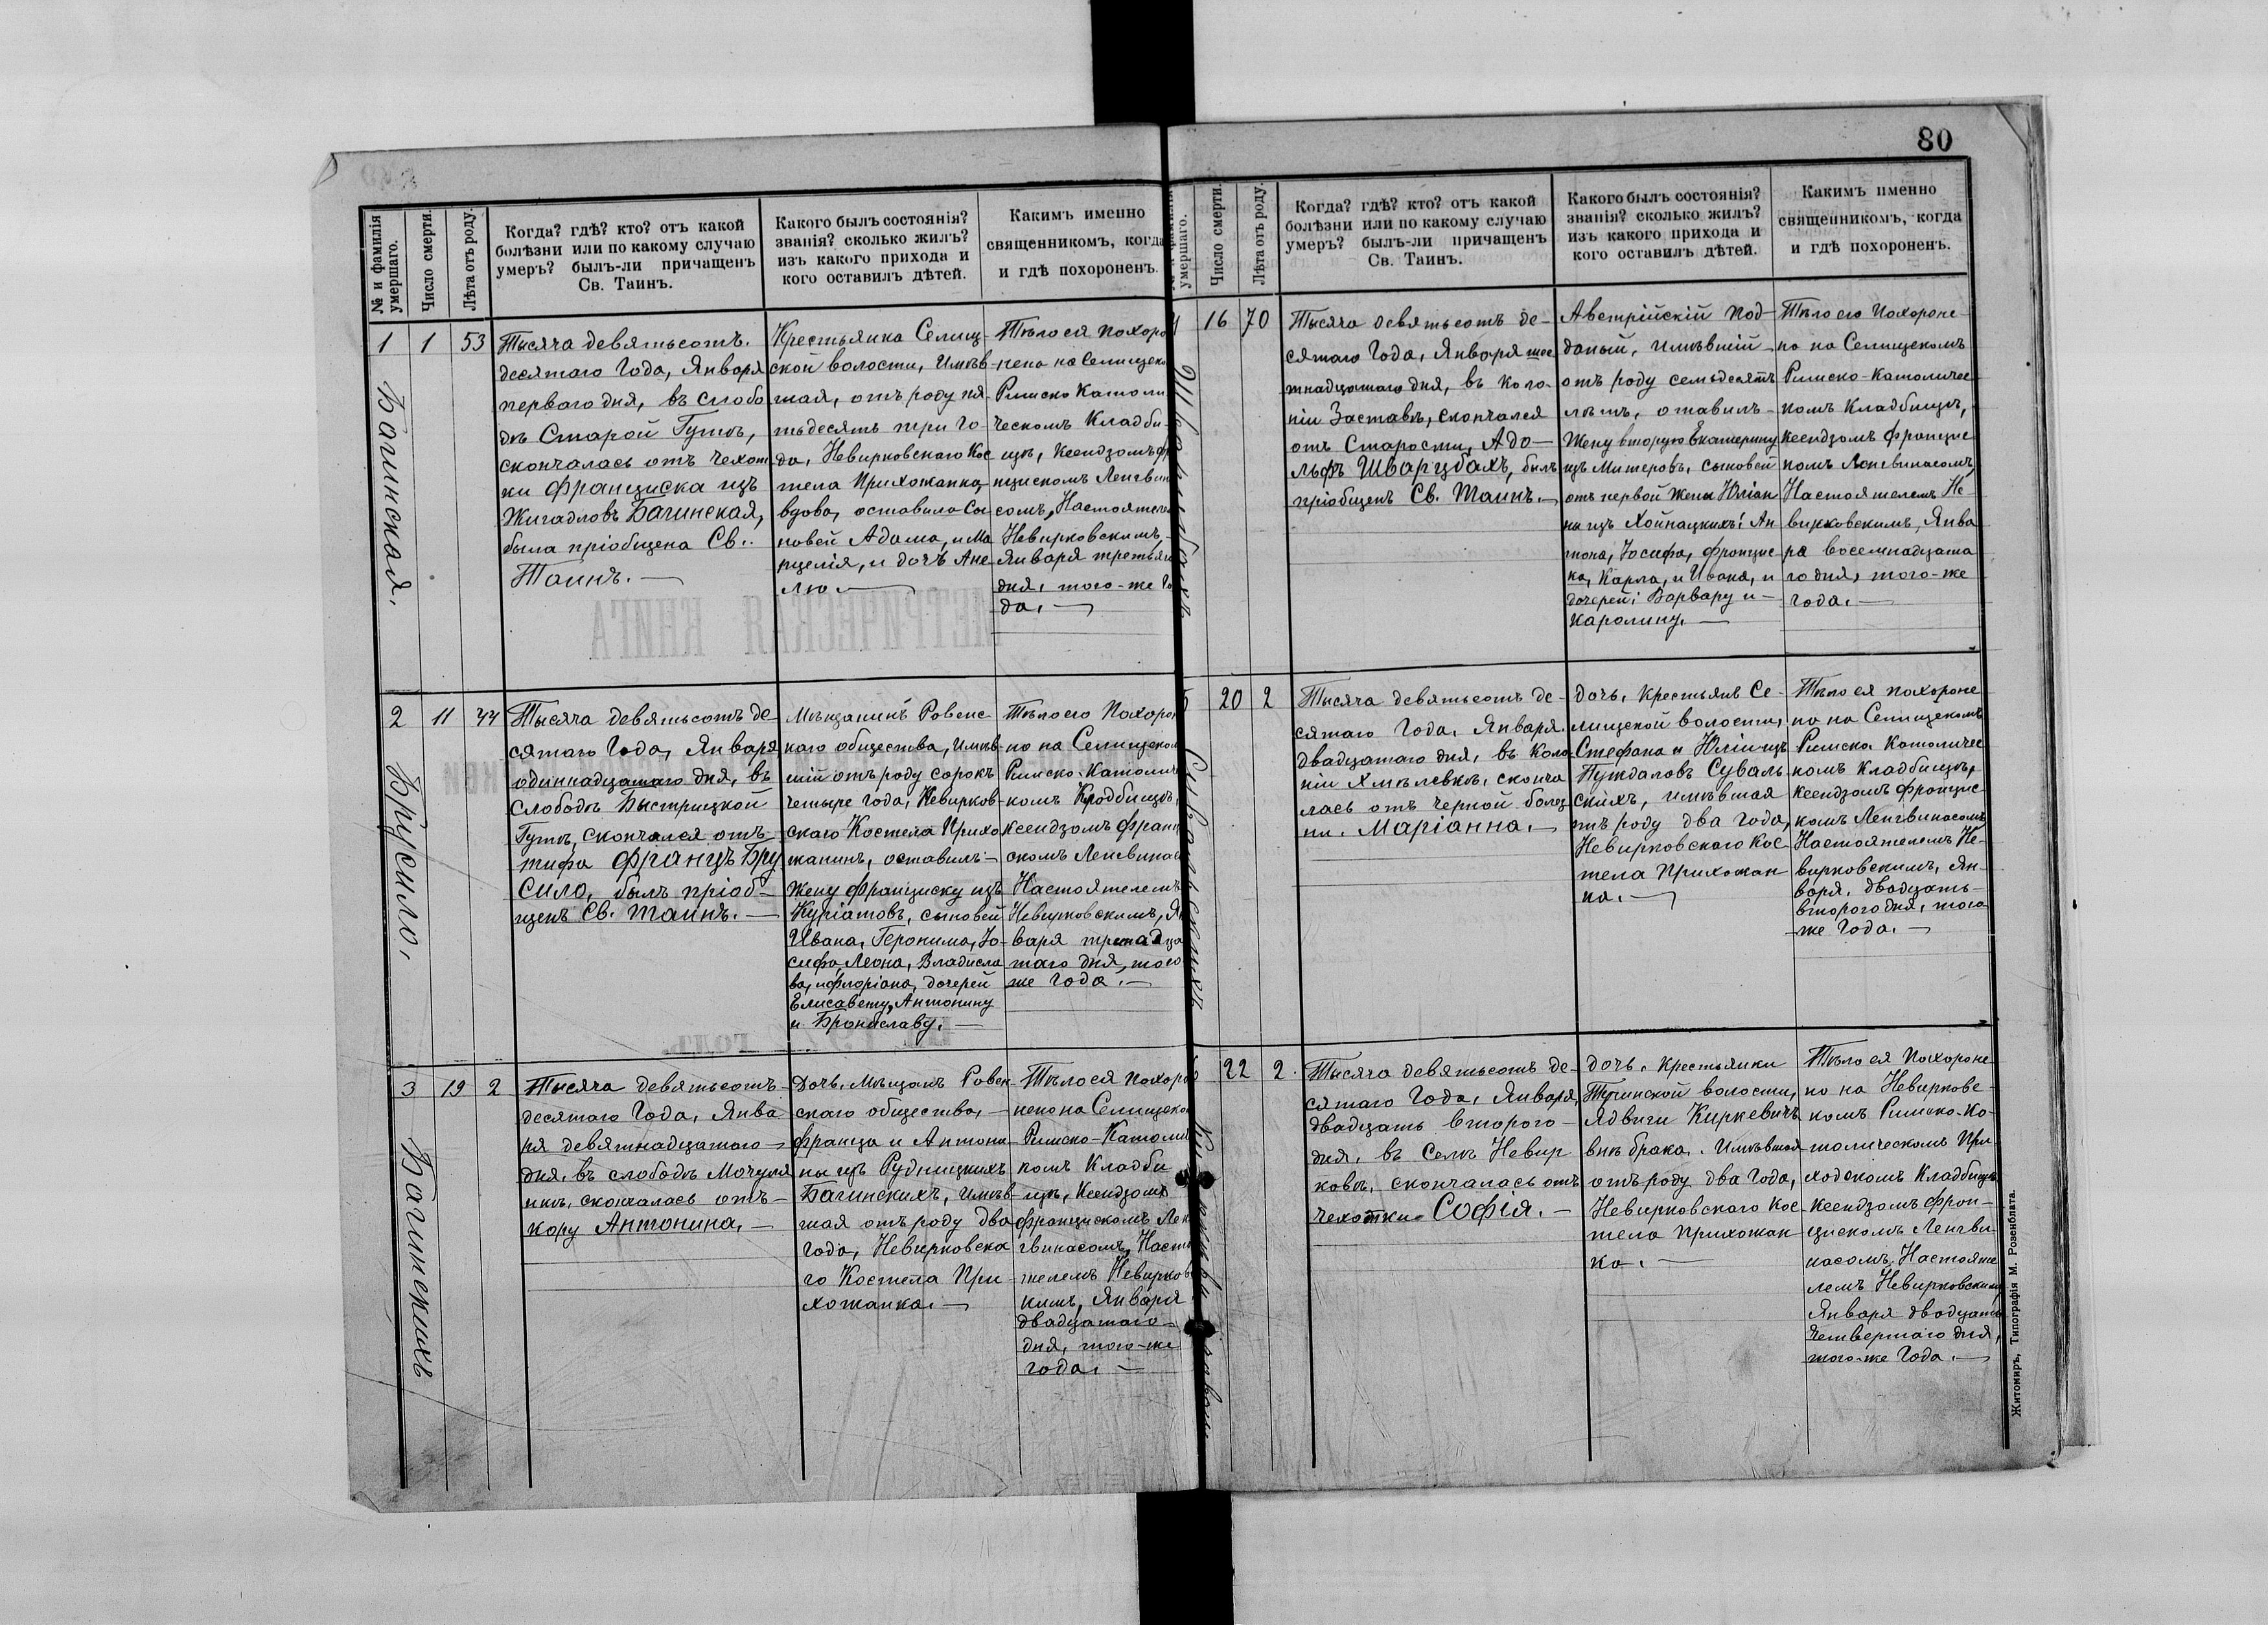 80
№ и фамилія
умершаго.
Число смерти.
Лѣта отъ роду.
Когда? гдѣ? кто? отъ какой
болѣзни или по какому случаю
умеръ? былъ-ли причащенъ
Св. Таинъ.
Какого былъ состоянія?
званія? сколько жилъ?
изъ какого прихода и
кого оставилъ дѣтей.
Какимъ именно
священникомъ, когда
и гдѣ похороненъ.
1
Багинская.
1
53
Тысяча девятьсотъ
десятаго Года, Января
перваго дня, въ слобо
дѣ Старой Гутѣ,
скончалась отъ чехот
ки Франциска изъ
Жигадловъ Багинская,
была пріобщена Св.
Таинъ. —
Крестьянка Селищ-
ской волости, имѣв-
шая, отъ роду пя-
тьдесятъ три го-
да, Невирковскаго Кос
тела Прихожанка,
вдова, оставила сы
новей Адама, и Ма
рцелія, и дочь Ане-
лю —
Тѣло ея похоро
нена на Селищско
Римско Католи
ческомъ Кладби-
щѣ, Ксендзомъ Фр
нцискомъ Ленгвин
сомъ, Настоятеле
Невирковскимъ,
Января третьяго
дня, того-же Го
да. —
2
Брусило.
11
44
Тысяча девятьсотъ де-
сятаго Года, Января,
одиннадцатаго дня, въ
Слободѣ Быстрицкой
Гутѣ, скончался отъ
тифа Францъ Бру
сило, былъ пріоб-
щенъ Св. Таинъ. —
Мѣщанинъ Ровенс
каго общества, имѣв-
шій отъ роду сорокъ
четыре года, Невирков-
скаго Костела Прихо
жанинъ, оставилъ:
жену Франциску изъ
Куріатовъ, сыновей
Ивана, Геронима, Іо-
сифа, Леона, Владисла
ва, и Флоріана, дочерей
Елисавету, Антонину
и Брониславу. —
Тѣло его Похорон
но на Селищском
Римско-Католич
комъ Кладбищѣ,
Ксендзомъ Франц
скомъ Ленгвинас
Настоятелемъ
Невирковскимъ, Ян
варя тринадца
таго дня, того
же года. —
3
Багинскихъ
19
2
Тысяча девятьсотъ
десятаго Года, Янва
ря девятнадцатаго
дня, въ слободѣ Мочуля
нкѣ, скончалась отъ
кору Антонина. —
Дочь, Мѣщанъ Ровен
скаго общества, —
Франца и Антони-
ны изъ Рудницкихъ
Багинскихъ, имѣв-
шая отъ роду два
года, Невирковска
го Костела При-
хожанка. —
Тѣло ея похоро
нено на Селищско
Римско-Католи
комъ Кладби
щѣ, Ксендзомъ
Францискомъ Лен
гвинасомъ, Насто
телемъ Невирков
кимъ, Января
двадцатаго
дня, того-же
года. —
умершаго.
Число смерти.
Лѣта отъ роду.
Когда? гдѣ? кто? отъ какой
болѣзни или по какому случаю
умеръ? былъ-ли причащенъ
Св. Таинъ.
Какого былъ состоянія?
званія? сколько жилъ?
изъ какого прихода и
кого оставилъ дѣтей.
Какимъ именно
священникомъ, когда
и гдѣ похороненъ.
Шварцбахъ
16
70
Тысяча девятьсотъ де-
сятаго Года, Января шес
тнадцатаго дня, въ коло-
ніи Заставѣ, скончался
отъ Старости, Адо-
льфъ Шварцбахъ, былъ
пріобщенъ Св. Таинъ. —
Австрійскій под-
даный, имѣвшій
отъ роду семьдесятъ
лѣтъ, оставилъ
жену вторую Екатерину
изъ Митеровъ, сыновей
отъ первой жены Юліан
ны изъ Хойнацкихъ: Ан
тона, Іосифа, Францис
ка, Карла, и Ивана, и
дочерей: Варвару и
Каролину. —
Тѣло его Похороне
но на Селищскомъ
Римско-Католичес
комъ Кладбищѣ,
Ксендзомъ Францис
комъ Ленгвинасомъ,
Настоятелемъ Не-
вирковскимъ, Янва
ря восемнадцата
го дня, того-же
года. —
Сувальскихъ
20
2
Тысяча девятьсотъ де-
сятаго Года, Января
двадцатаго дня, въ Коло
ніи Хмѣлевкѣ, сконча
лась отъ черной болез
ни. Маріанна. —
Дочь, Крестьянъ Се-
лищской волости,
Стефана и Юліи изъ
Пуждаловъ Суваль
скихъ, имѣвшая
отъ роду два года,
Невирковскаго Кос-
тела Прихожан
ка. —
Тѣло ея похороне
но на Селищскомъ
Римско-Католичес
комъ Кладбищѣ,
Ксендзомъ Францис
комъ Ленгвинасомъ
Настоятелемъ Не-
вирковскимъ, Ян-
варя, двадцать-
второго дня, того
же Года. —
22
2.
Тысяча девятьсотъ де-
сятаго Года, Января,
двадцать второго
дня, въ Селѣ Невир
ковѣ, скончалась отъ
чехотки Софія. —
Дочь, Крестьянки
Тучинской волости,
Ядвиги Киркевичъ
внѣ брака, имѣвшая
отъ роду два года,
Невирковскаго Кос-
тела Прихожан
ка. —
Тѣло ея Похороне
но на Невирковс-
комъ Римско-Ка-
толическомъ При
ходскомъ Кладбищѣ
Ксендзомъ Фран-
цискомъ Ленгви-
насомъ, Настояте
лемъ Невирковскимъ
Января двадцать
четвертаго дня,
того-же Года. —
Житомиръ, Типографія М. Розенблата.